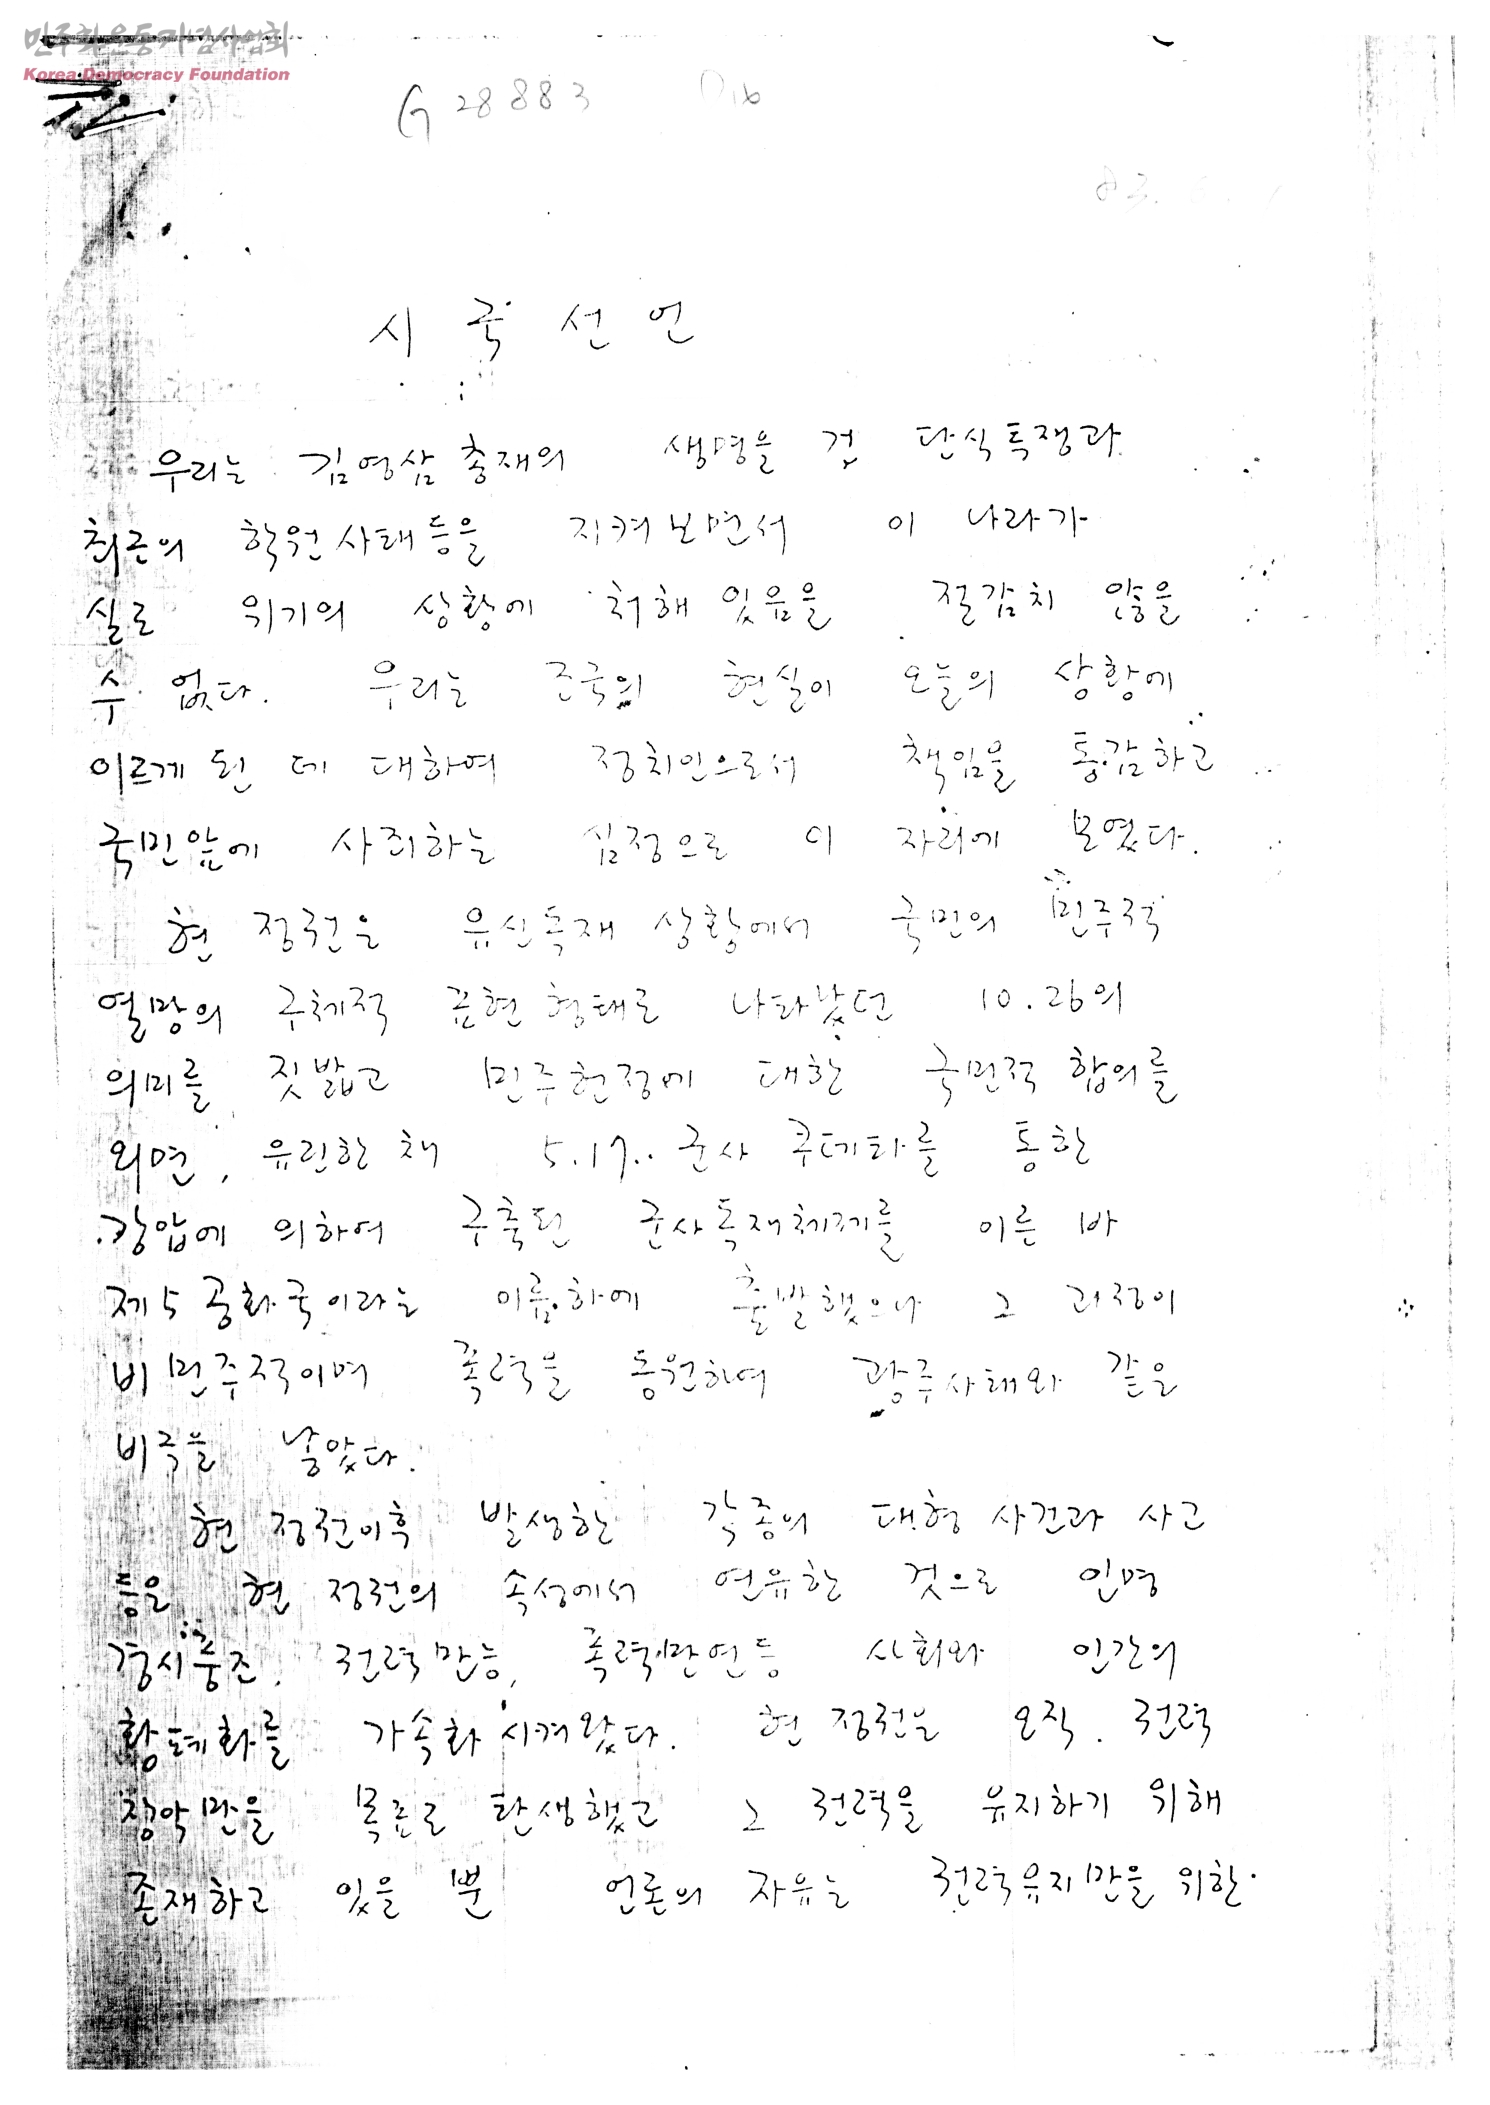 민주화운동기념사업회
Korea Democracy Foundation
G 28883
83.
시국선언
우리는 김영삼 총재의 생명을 건 단식투쟁과
최근의 학원사태등을 지켜보면서 이 나라가
실로 위기의 상황에 처해 있음을 절감치 않을
수 없다. 우리는 조국의 현실이 오늘의 상황에
이르게 된 데 대하여 정치인으로서 책임을 통감하고
국민앞에 사죄하는 심정으로 이 자리에 모였다.
현 정권은 유신독재 상황에서 국민의 민주적
열망의 구체적 표현형태로 나타났던 10.26의
의미를 짓밟고 민주헌정에 대한 국민적 합의를
외면, 유린한 채 5.17.. 군사 쿠데타를 통한
강압에 의하여 구축된 군사독재체제를 이른 바
제5공화국이라는 이름하에 출발했으나 그 과정이
비민주적이며 폭력을 동원하여 광주사태와 같은
비극을 낳았다.
현 정권이후 발생한 각종의 대형 사건과 사고
등은 현 정권의 속성에서 연유한 것으로 인명
경시풍조, 권력만능, 폭력만연등 사회와 인간의
황폐화를 가속화 시켜왔다. 현 정권은 오직 권력
장악만을 목표로 탄생했고 그 권력을 유지하기 위해
존재하고 있을 뿐 언론의 자유는 권력유지만을 위한